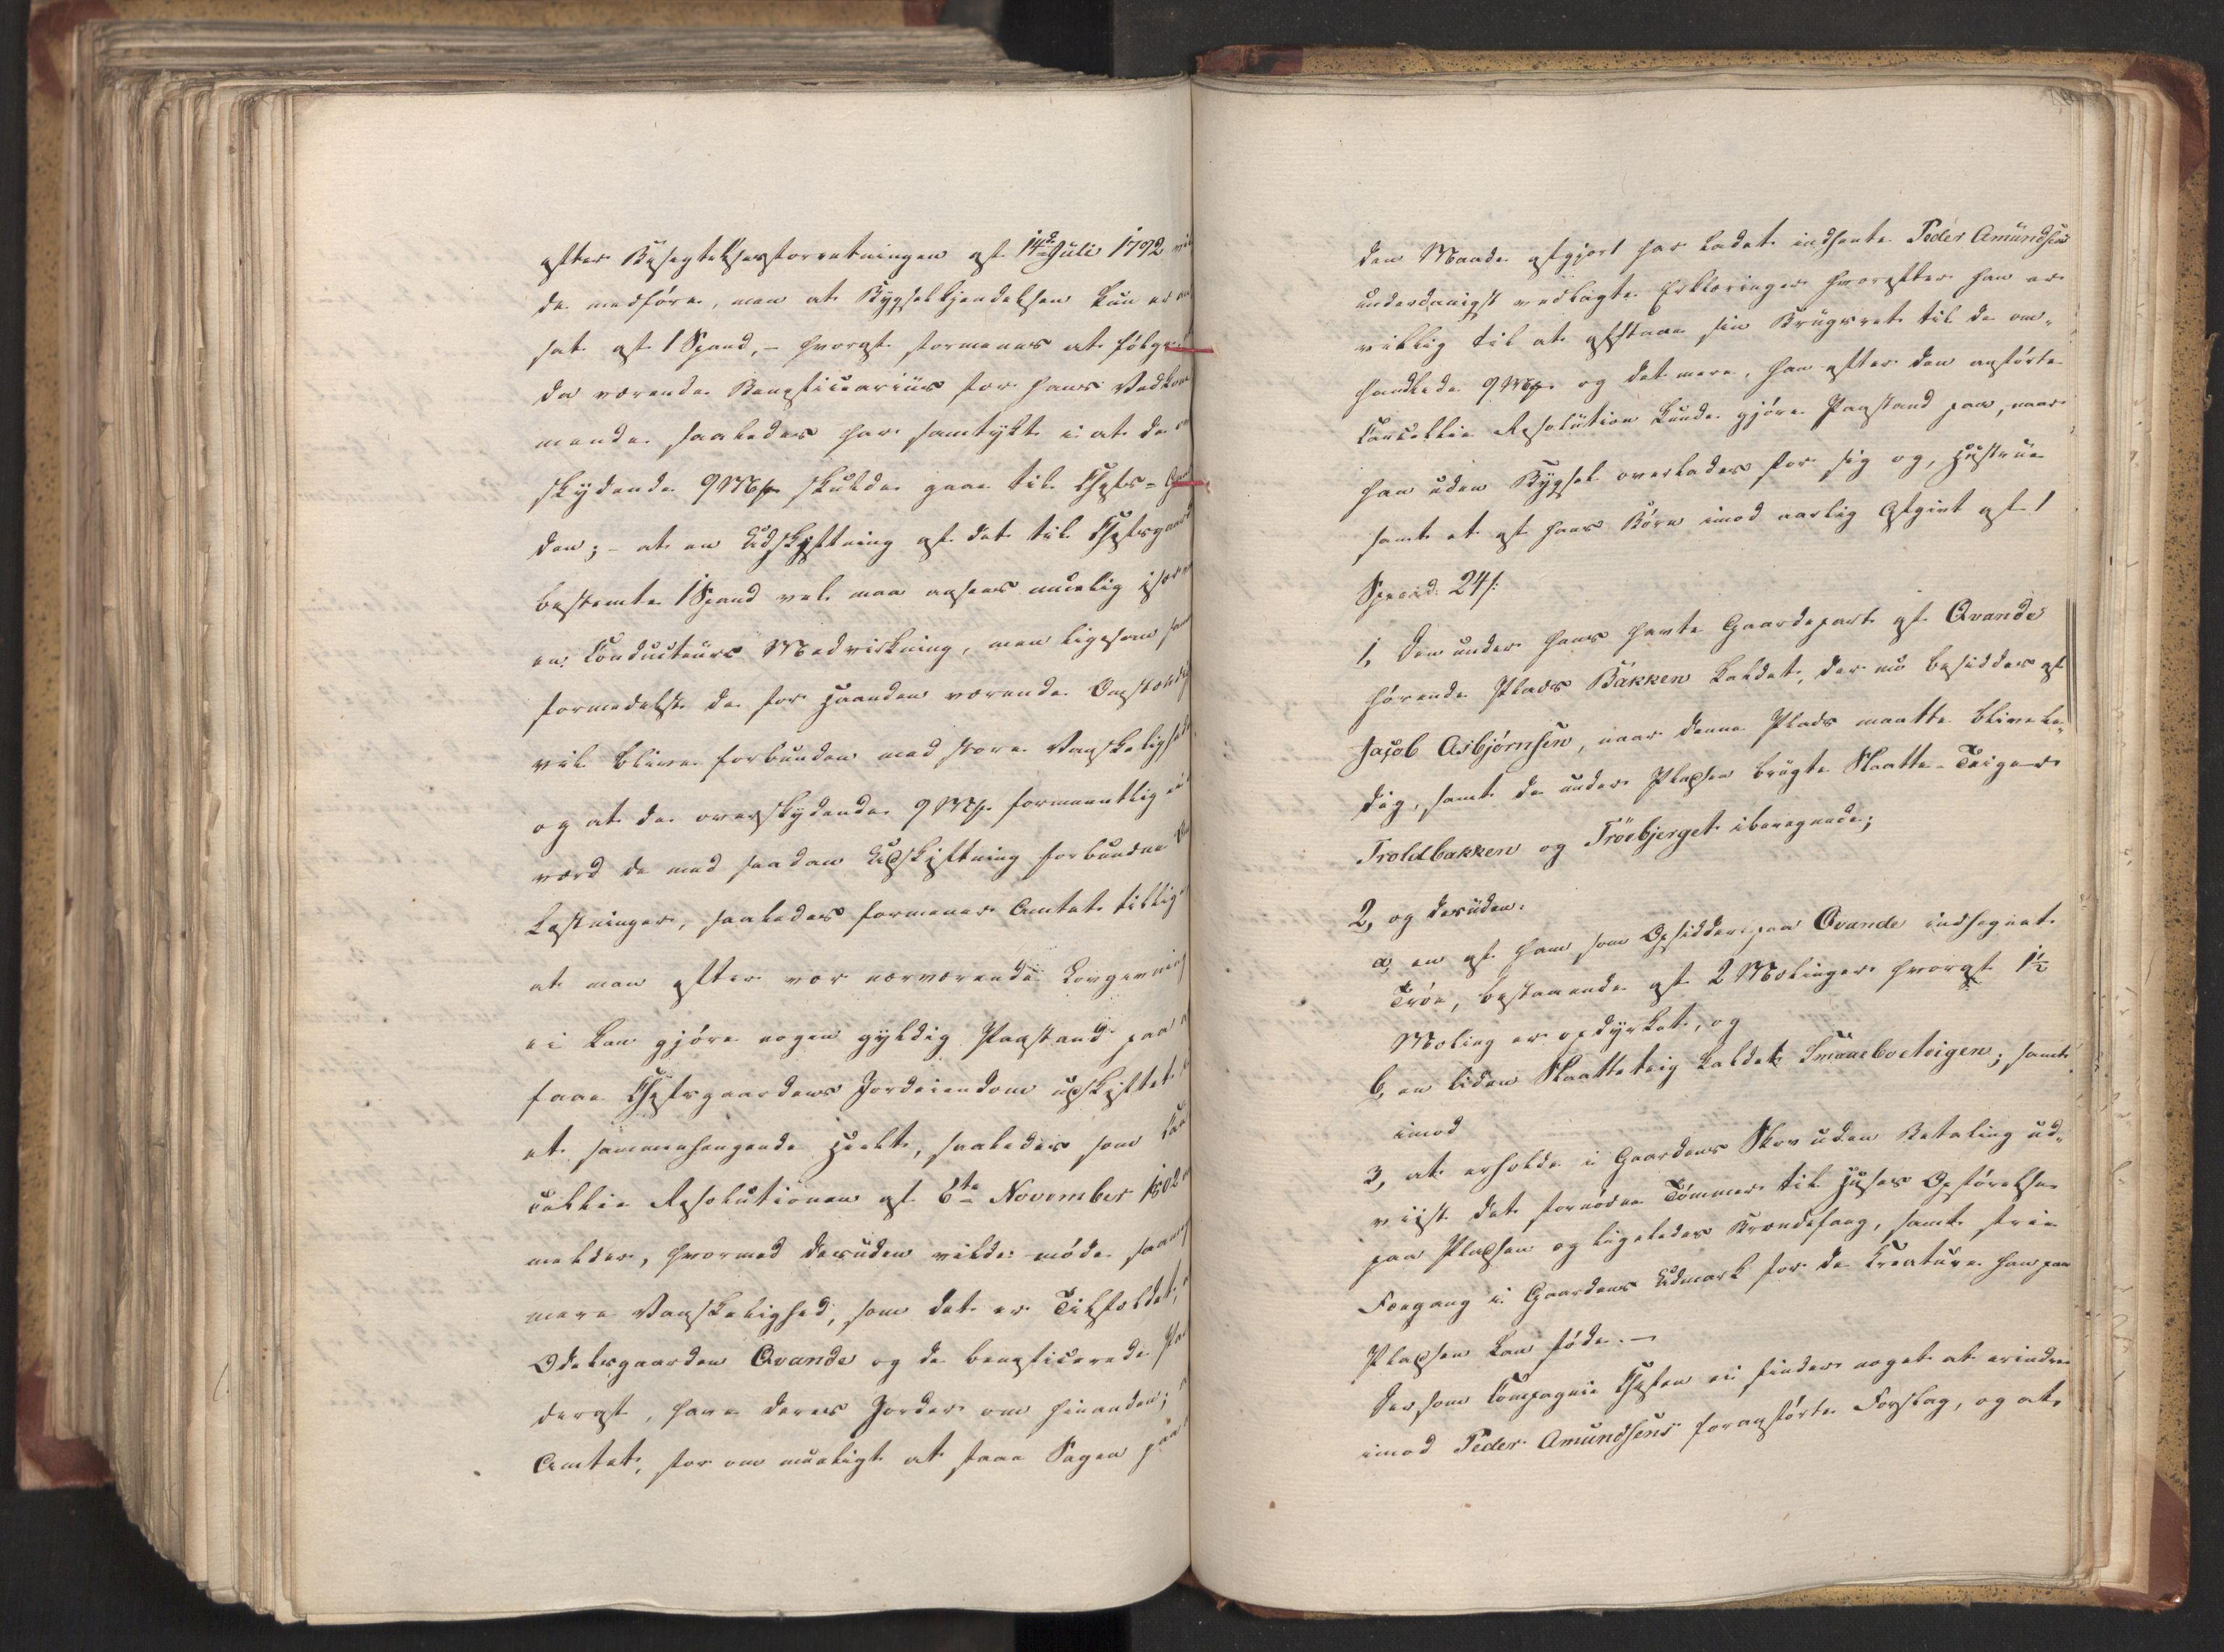 efter Besigtelsesforretningen af 14de Juli 1792
de medføre, men at Bygselkjendelsen kun er
sat af 1 Spand, – hvoraf formenes at følge
da værende Beneficiarius for hans Vedkom
mende saaledes har samtykt i at de
skydende 9 Mk skulde gaae til Chefs-
den; – at en Udskiftning af det til Chefsgaard
bestemte 1 Spand vel maa ansees muelig
en Conducteurs Medvirkning, men ligesom
formedelst de for Haanden værende Omstændig
vil blive forbunden med store Vanskelighed
og at de overskydende 9 Mk formeentlig ei
værd de med saadan Udskiftning forbundne
kostninger, saaledes formener Amtet tillige
at man efter vor nærværende Lovgivning
ei kan gjøre nogen gyldig Paastand paa
faae Chefsgaardens Jordeiendom udskiftet
et sammenhængende Heelt, saaledes som Can
cellie Resolutionen af 6te November 1802
melder, hvormed desuden vilde møde saameget
mere Vanskelighed, som det er Tilfældet,
Odelsgaarden Qvande og de beneficerede
deraf, have deres Jorder om hinanden;
Amtet, for om mueligt at faae Sagen paa
den Maade afgjort har ladet indhente Peder Amundsens
underdanigst vedlagte Erklæringer hvorefter han er
villig til at afstaae sin Brugsret til de om-
handlede 9 Mk og det mere, han efter den anførte
Cancellie Resolution kunde gjøre Paastand paa, naar
han uden Bygsel overlades for sig og, Hustrue
samt et af hans Børn imod aarlig Afgivt af 1
Specid: 24 s:
1, Den under hans havte Gaardepart af Qvande
hørende Plads Bakken kaldet, der nu besiddes af
Jacob Asbjørnsen, naar denne Plads maatte blive le-
dig, samt de under Pladsen brugte Slaatte-Teiger
Troldbakken og Tröebjerget iberegnede;
2, og desuden:
a, en af ham som Opsidder paa Qvande indhegnet
Trøe, bestaaende af 2 Mælinger hvoraf 1½
Mæling er opdyrket, og
b, en liden Slaatteteig kaldet Smaaeboeteigen; samt
imod
3, at erholde i Gaardens Skov uden Betaling ud-
viist det fornødne Tømmer til Huses Opførelse
paa Pladsen og ligeledes Brændefang, samt frie
Fægang i Gaardens Udmark for de Kreature han paa
Pladsen kan føde. –
Dersom Compagnie Chefen ei finder noget at erindre
imod Peder Amundsens foranførte Forslag, og at